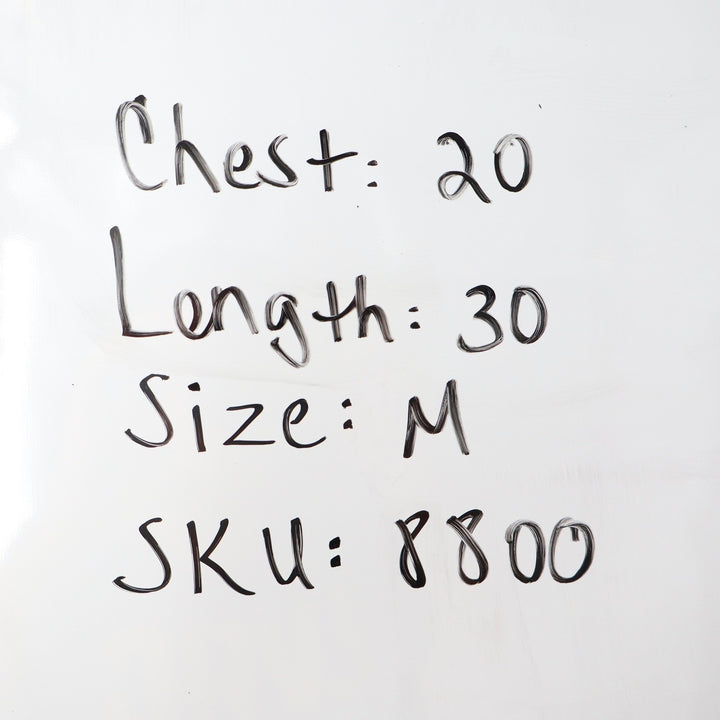 Chest: 20
Length: 30
Size: M
SKU: 8800